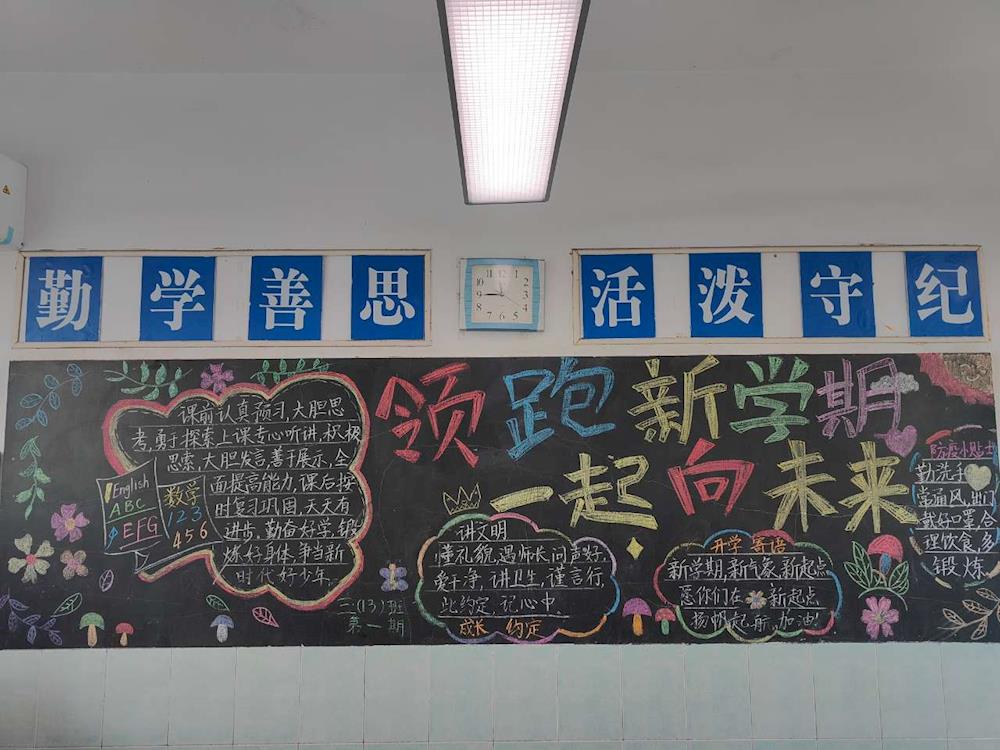 勤学善思
活泼守纪
11 12 1
10 2
9 3
8 4
7 6 5
领跑新学期
一起向未来
课前认真预习,大胆思
考,勇于探索上课专心听讲,积极
思索,大胆发言,善于展示,全
面提高能力,课后按
时复习巩固,天天有
进步,勤奋好学,锻
炼好身体,争当新
时代好少年.
English
ABC
EFG
数学
123
456
二(13)班
第一期
讲文明
懂礼貌,遇师长,问声好,
爱干净,讲卫生,谨言行,
此约定,记心中.
成长 约定
开学 寄语
新学期,新气象,新起点
愿你们在 新起点
扬帆起航,加油!
防疫小贴士
勤洗手
常通风,出门
戴好口罩,合
理饮食,多
锻炼